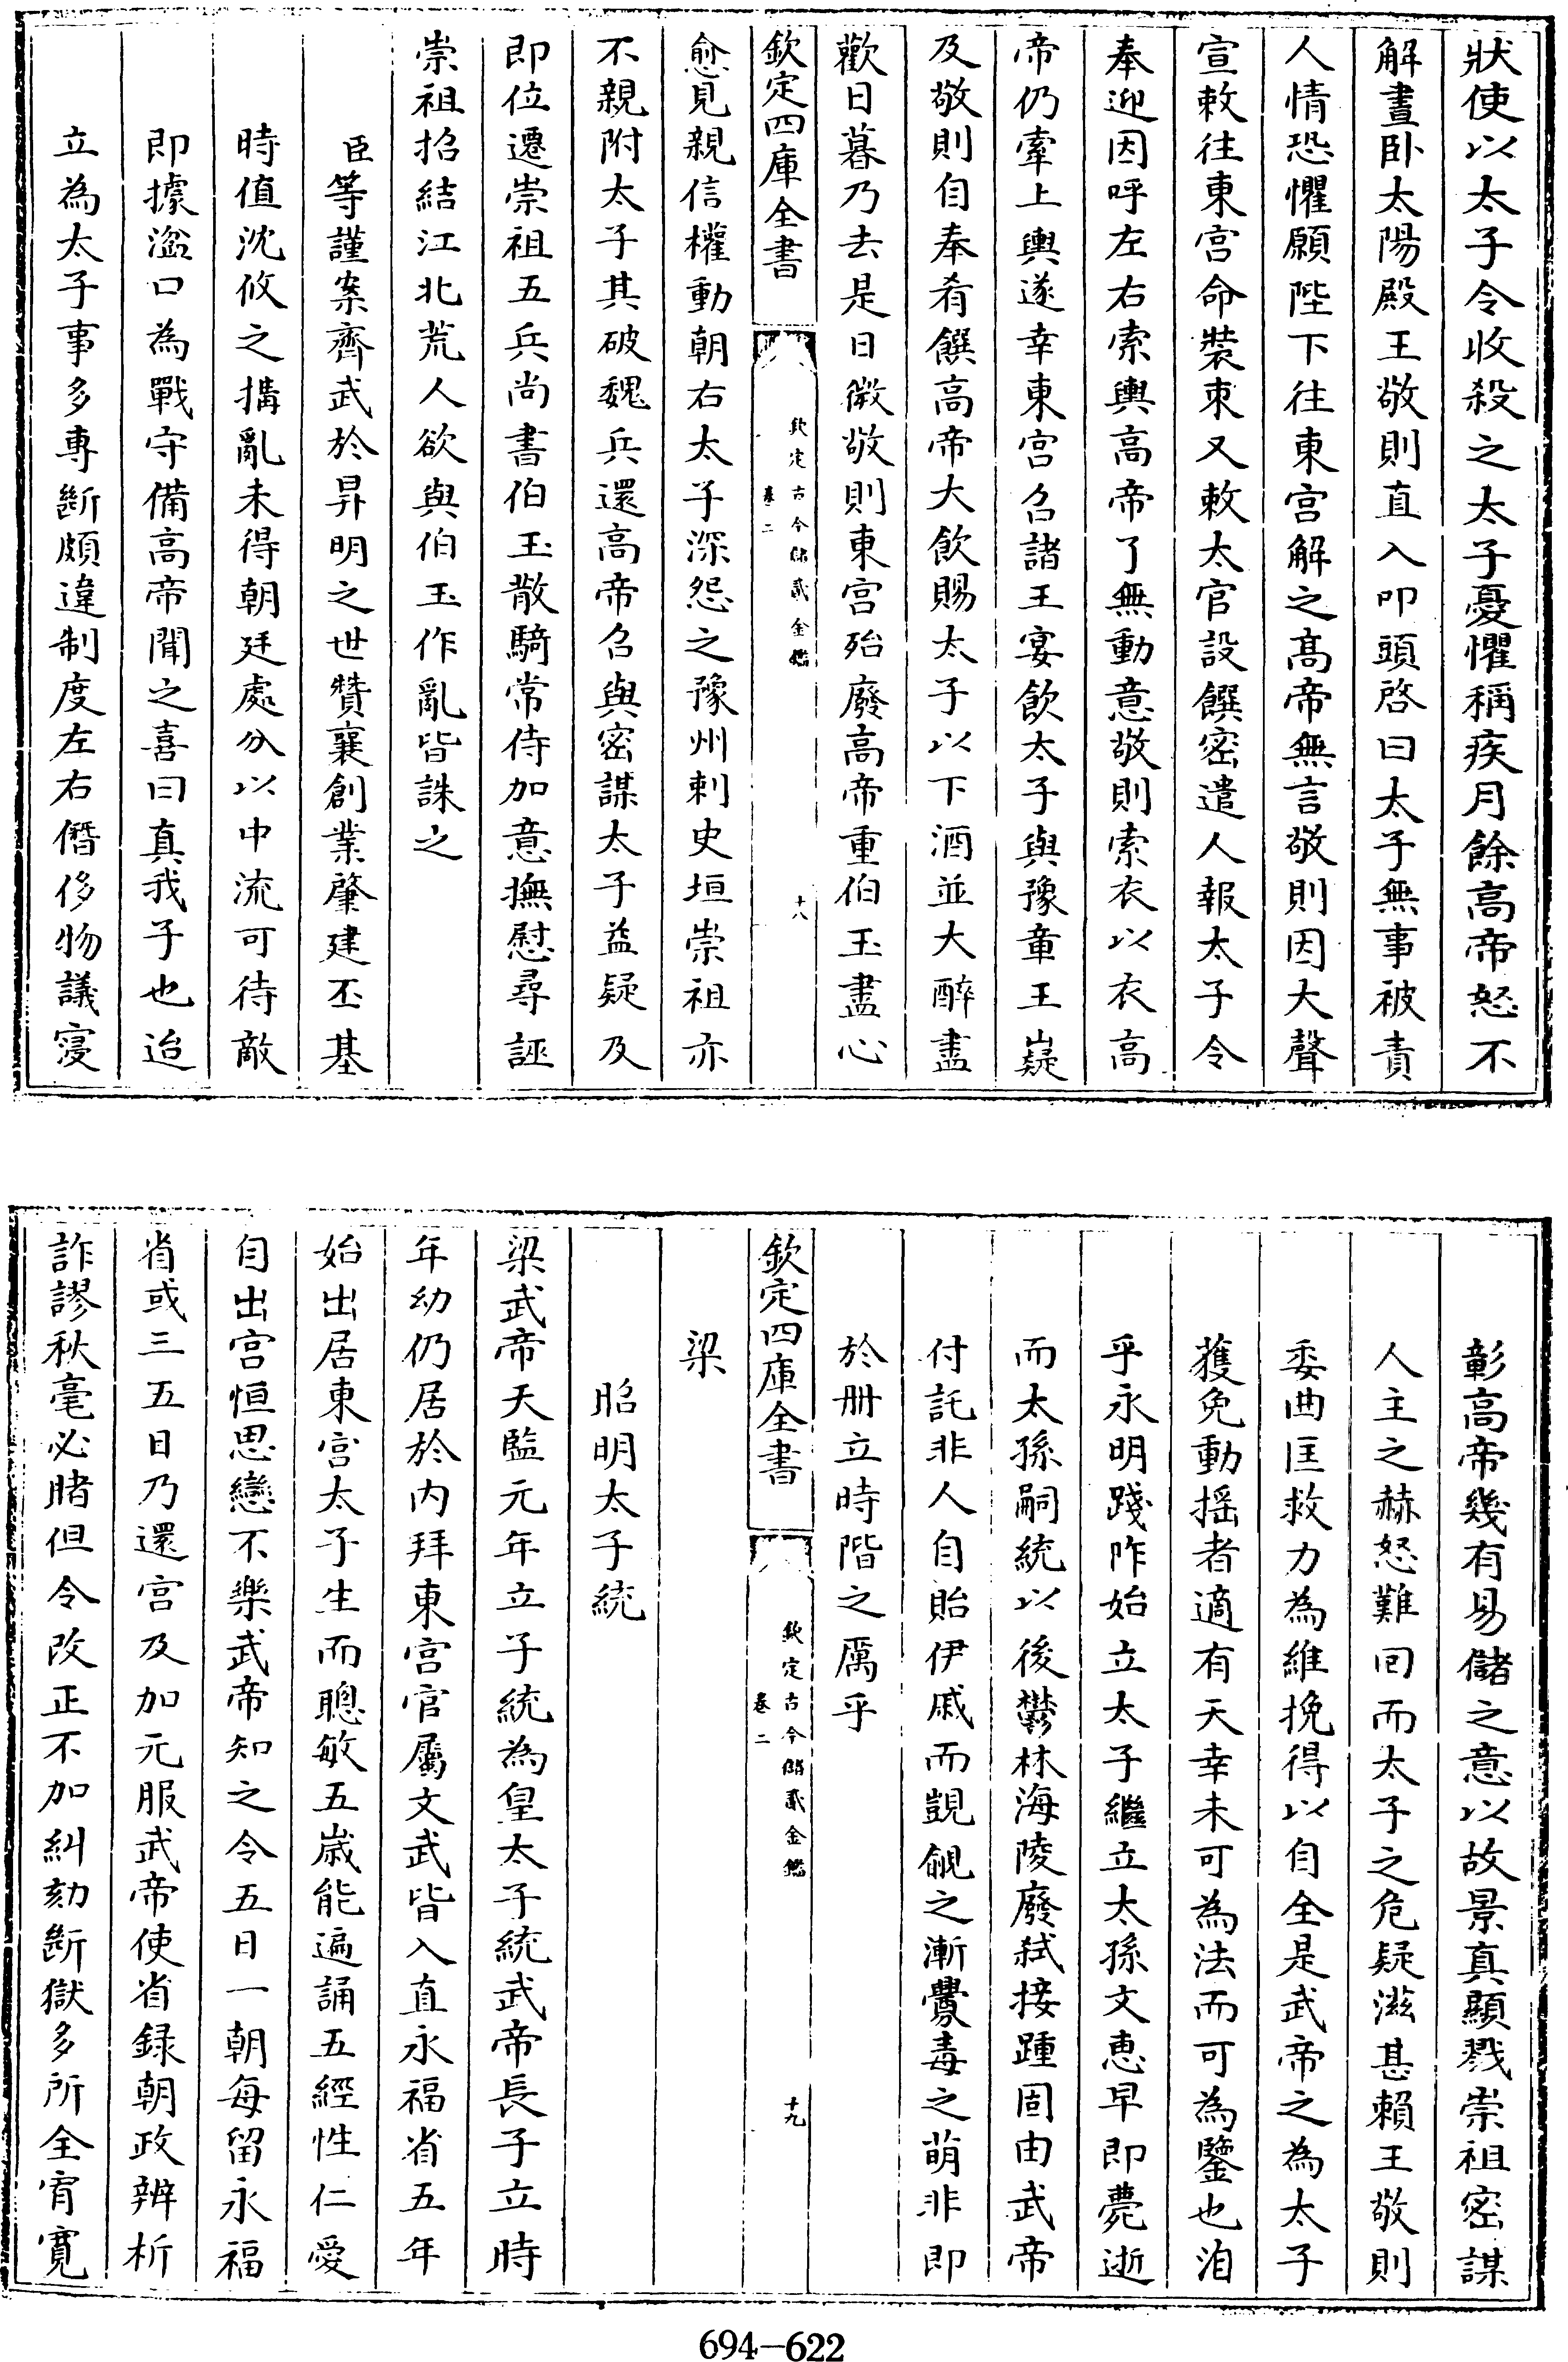 狀使以太子令收殺之太子憂懼稱疾月餘高帝怒不
解晝卧太陽殿王敬則直入叩頭啓曰太子無事被責
人情恐懼願陛下往東宫解之髙帝無言敬則因大聲
宣敕往東宫命裝束又敕太官設饌密遣人報太子令
奉迎因呼左右索輿高帝了無動意敬則索衣以衣高
帝仍牽上輿遂幸東宫召諸王宴飲太子與豫章王嶷
及敬則自奉肴饌高帝大飲賜太子以下酒並大醉盡
歡日暮乃去是日微敬則東宫殆廢高帝重伯玉盡心
欽定四庫全書
欽定古今儲貳金鑑
卷二
十八
愈見親信權動朝右太子深怨之豫州刺史垣崇祖亦
不親附太子其破魏兵還高帝召與密謀太子益疑及
即位遷崇祖五兵尚書伯玉散騎常侍加意撫慰尋誣
崇祖招結江北荒人欲與伯玉作亂皆誅之
臣等謹案齊武於昇明之世贊襄創業肇建丕基
時值沈攸之搆亂未得朝廷處分以中流可待敵
即據湓口為戰守備高帝聞之喜曰真我子也迨
立為太子事多專斷頗違制度左右僭侈物議寖
彰高帝幾有易儲之意以故景真顯戮崇祖密謀
人主之赫怒難回而太子之危疑滋甚賴王敬則
委曲匡救力為維挽得以自全是武帝之為太子
獲免動揺者適有天幸未可為法而可為鑒也洎
乎永明踐阼始立太子繼立太孫文惠早即薨逝
而太孫嗣統以後鬱林海陵廢弑接踵固由武帝
付託非人自貽伊戚而覬覦之漸釁毒之萌非即
於冊立時階之厲乎
欽定四庫全書
欽定古今儲貳金鑑
卷二
十九
梁
昭明太子統
梁武帝天監元年立子統為皇太子統武帝長子立時
年幼仍居於内拜東宫官屬文武皆入直永福省五年
始出居東宫太子生而聰敏五歲能遍誦五經性仁愛
自出宫恒思戀不樂武帝知之令五日一朝每留永福
省或三五日乃還宫及加元服武帝使省録朝政辨析
詐謬秋毫必睹但令改正不加糾劾斷獄多所全宥寬
694-622